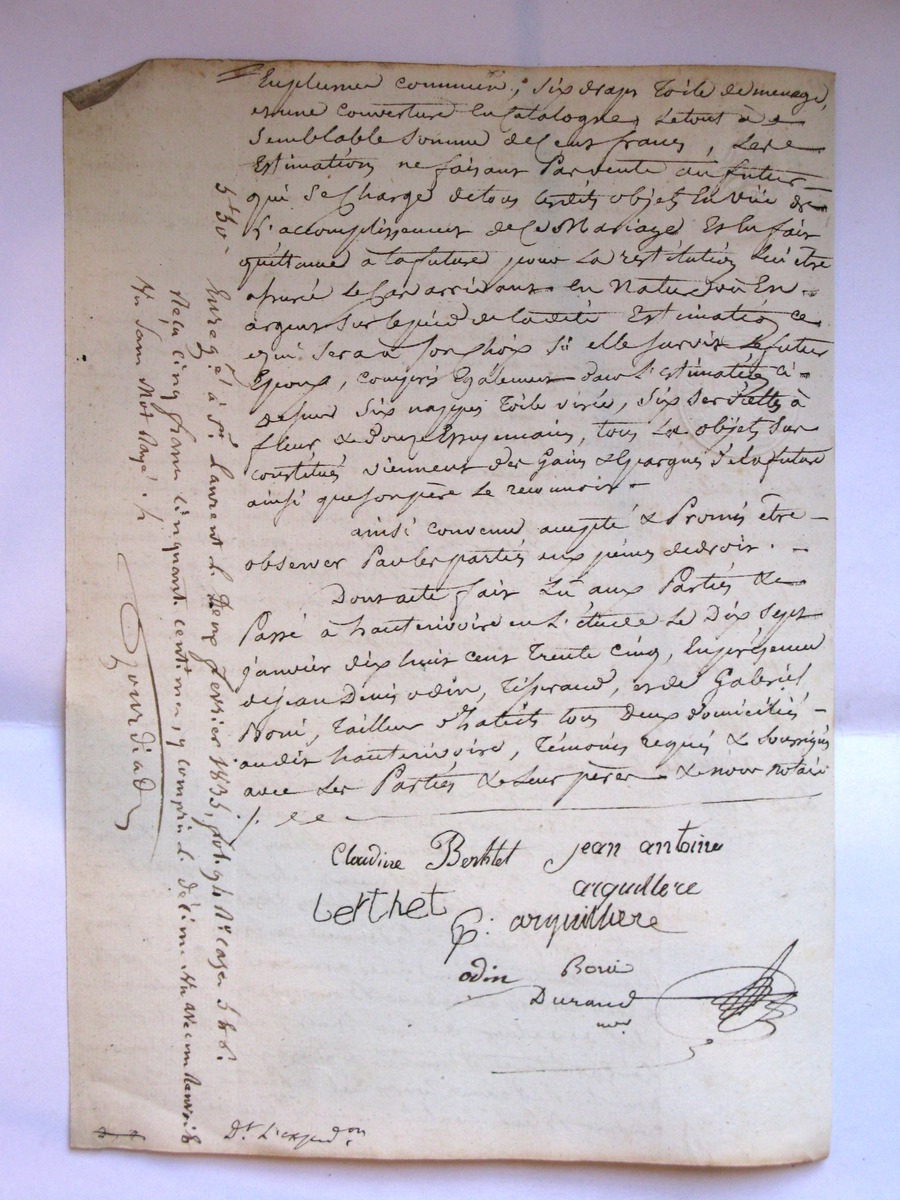 En plumes commun, six draps toile de menage,
et une couverture en Catalogne, le tout à
semblable somme de Cent francs, la
Estimation ne faisant Pas vente au futur
qui se Charge de tous lesdits objets En vüe de
L'accomplissement de Ce Mariage Et En fait
quittance à la future pour La restitution Lui être
assurée le Cas arrivant En Nature ou En
argent sur le pied de la dite Estimation ce
qui sera à son choix si elle survit le futur
Epoux, compris Egalement dans L'Estimation ci-
dessus six nappes toile , six serviettes à
fleur & Douze Essuyemains, tous les objets sur
constitués viennent des Gains & Epargnes de la future
ainsi que son père le reconnoit
ainsi convenu accepté & Promis être
observer Par les parties aux peines de droit.
Dont acte fait Lû aux Parties &
Passé à hauterivoire en L'étude Le Dix Sept
janvier dix huit cent Trente Cinq, En présence
de jean Denis odin, Tisserand, et de Gabriel
Boni, Tailleur d'habits tous Deux domiciliés
audit hauterivoire, Témoins requis & soussignés
avec Les Parties & Leur pères & de nous notaire
Claudine Berthet jean antoine
arguillere
berthet
arquilliere
odin Boni
Durand
nre
5f 50c
Enreg.é à St. Laurent le Deux fevrier 1835, fol. 94 Ro case 5 & 6.
Reçu cinq francs cinquante centimes, y compris le décime
un sans Mot Rayé
Gourdiad
Dt. L'expedon